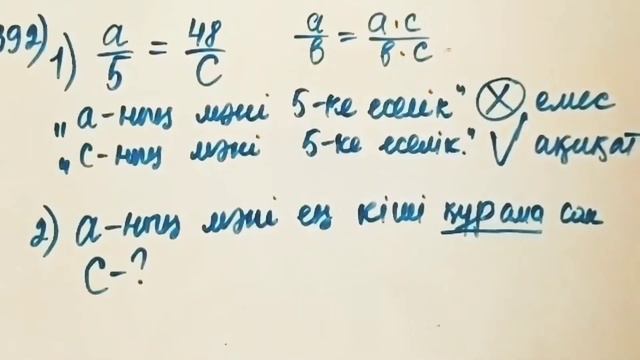 392) 1) a/5 = 48/c a/b = a·c/b·c
"а-ның мәні 5-ке еселік" X емес
"с-ның мәні 5-ке еселік." √ ақиқат
2) а-ның мәні ең кіші құрама сан
с-?